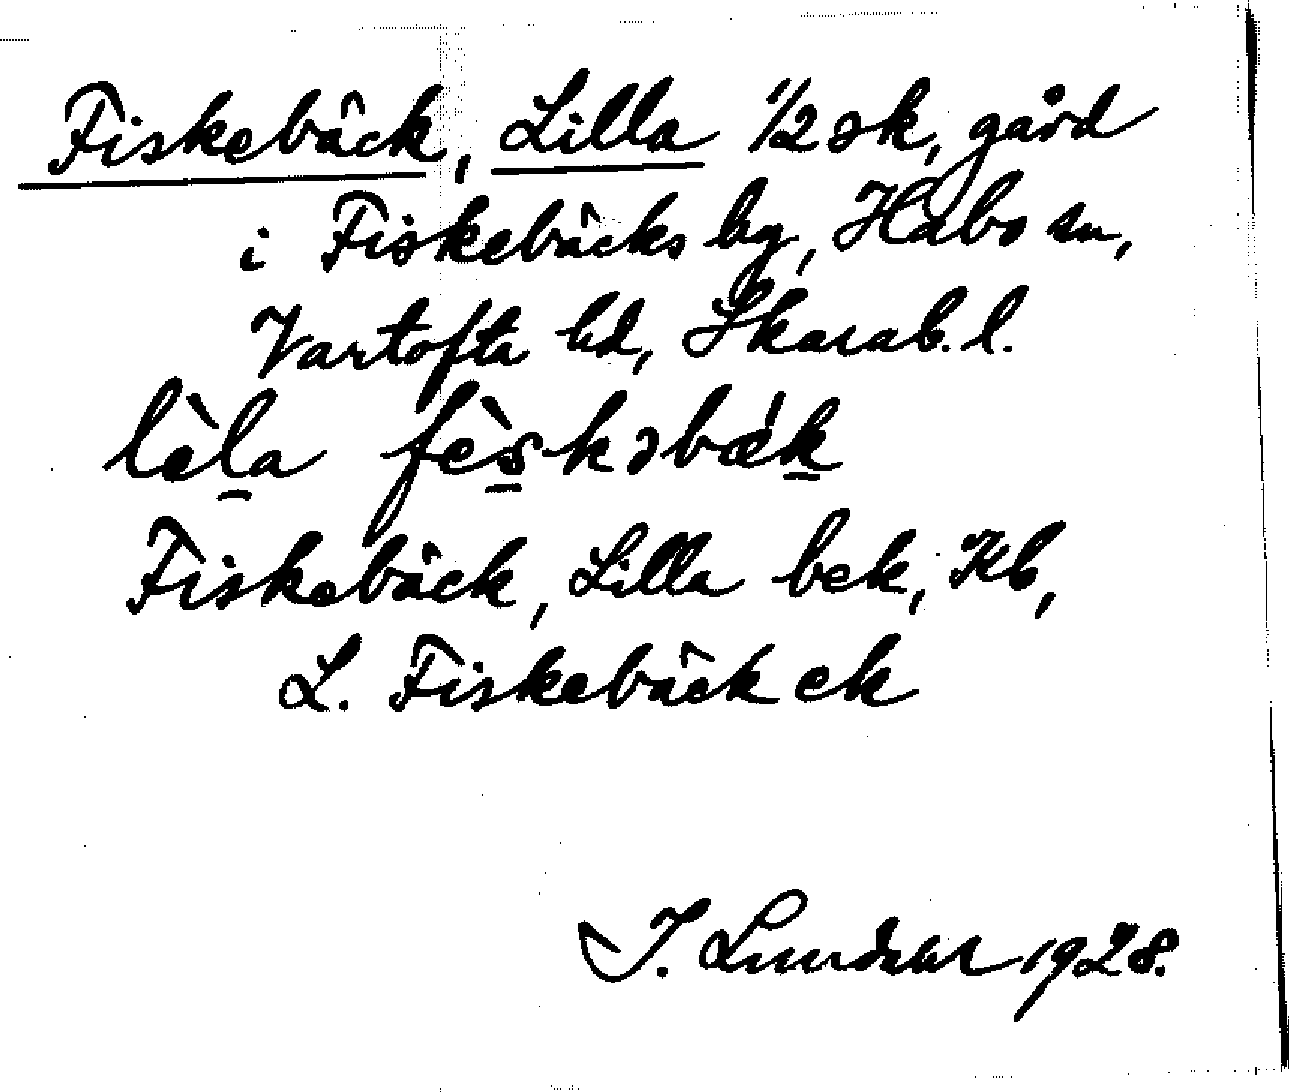 Fiskebäck, Lilla 1/2 sk, gård
i Fiskebäcks by, Habo sn,
Vartofta hd, Skarab. l.
lèla fèskəbæ´k
Fiskebäck, Lilla bek, Kb,
L. Fiskebäck ek
I. Lundahl 1928.